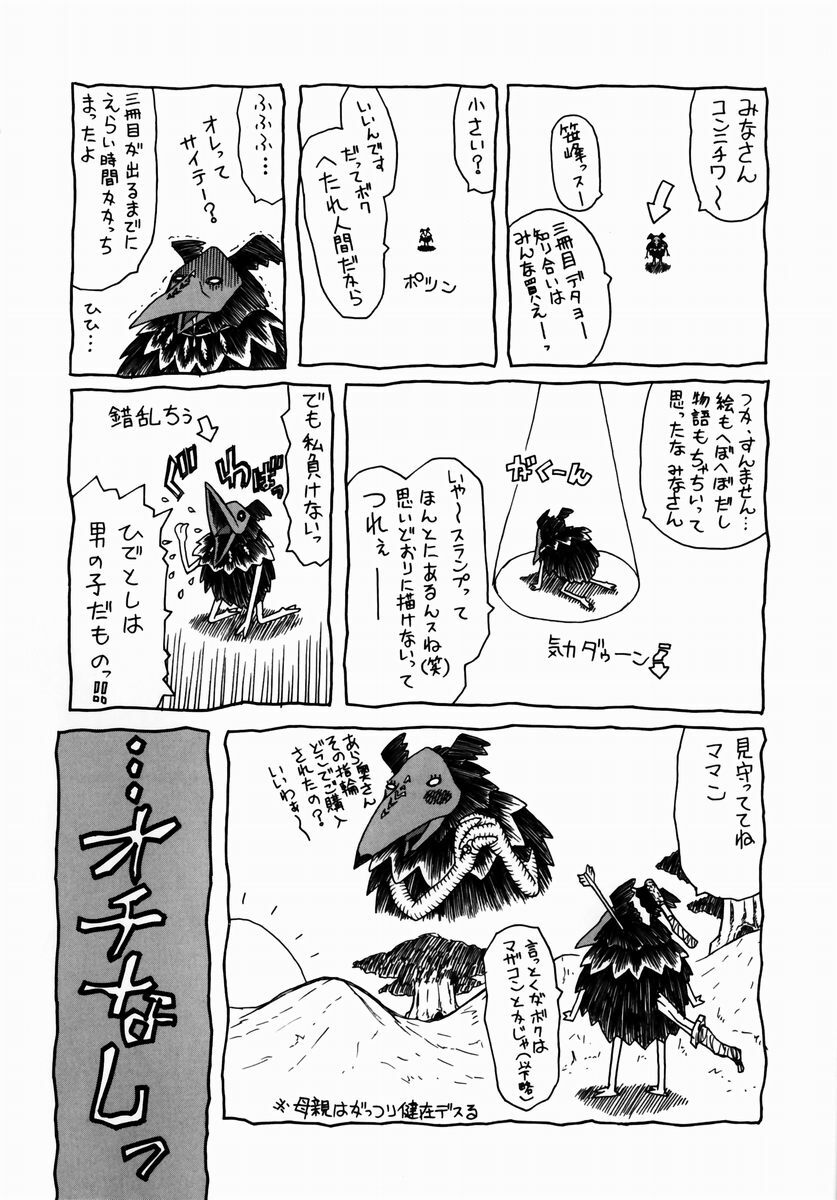 みなさん
コンニチワ〜
笹峰っスー
三冊目デタョー
知り合いは
みんな買えーーっ
小さい?
いいんです
だってボク
へたれ人間だから
ポツン
ふふふ…
オレって
サイテー?
三冊目が出るまでに
えらい時間かかっち
まったよ
ひひ…
つか、すんません…
絵もへぼへぼだし
物語もちゃちいって
思ったな みなさん
がくーん
気力ダゥーン
いや〜スランプって
ほんとにあるんスね(笑)
思いどおりに描けないって
つれぇーー
でも 私負けないっ
がばっ
ぐわ
錯乱ちぅ
ひでとしは
男の子だものっ!!
見守っててね
ママン
あら奥さん
その指輪
どこでご購入
されたの?
いいわぁ〜
言っとくがボクは
マザコンとかじゃ(以下略)
※母親はがっつり健在デスる
…オチなしっ